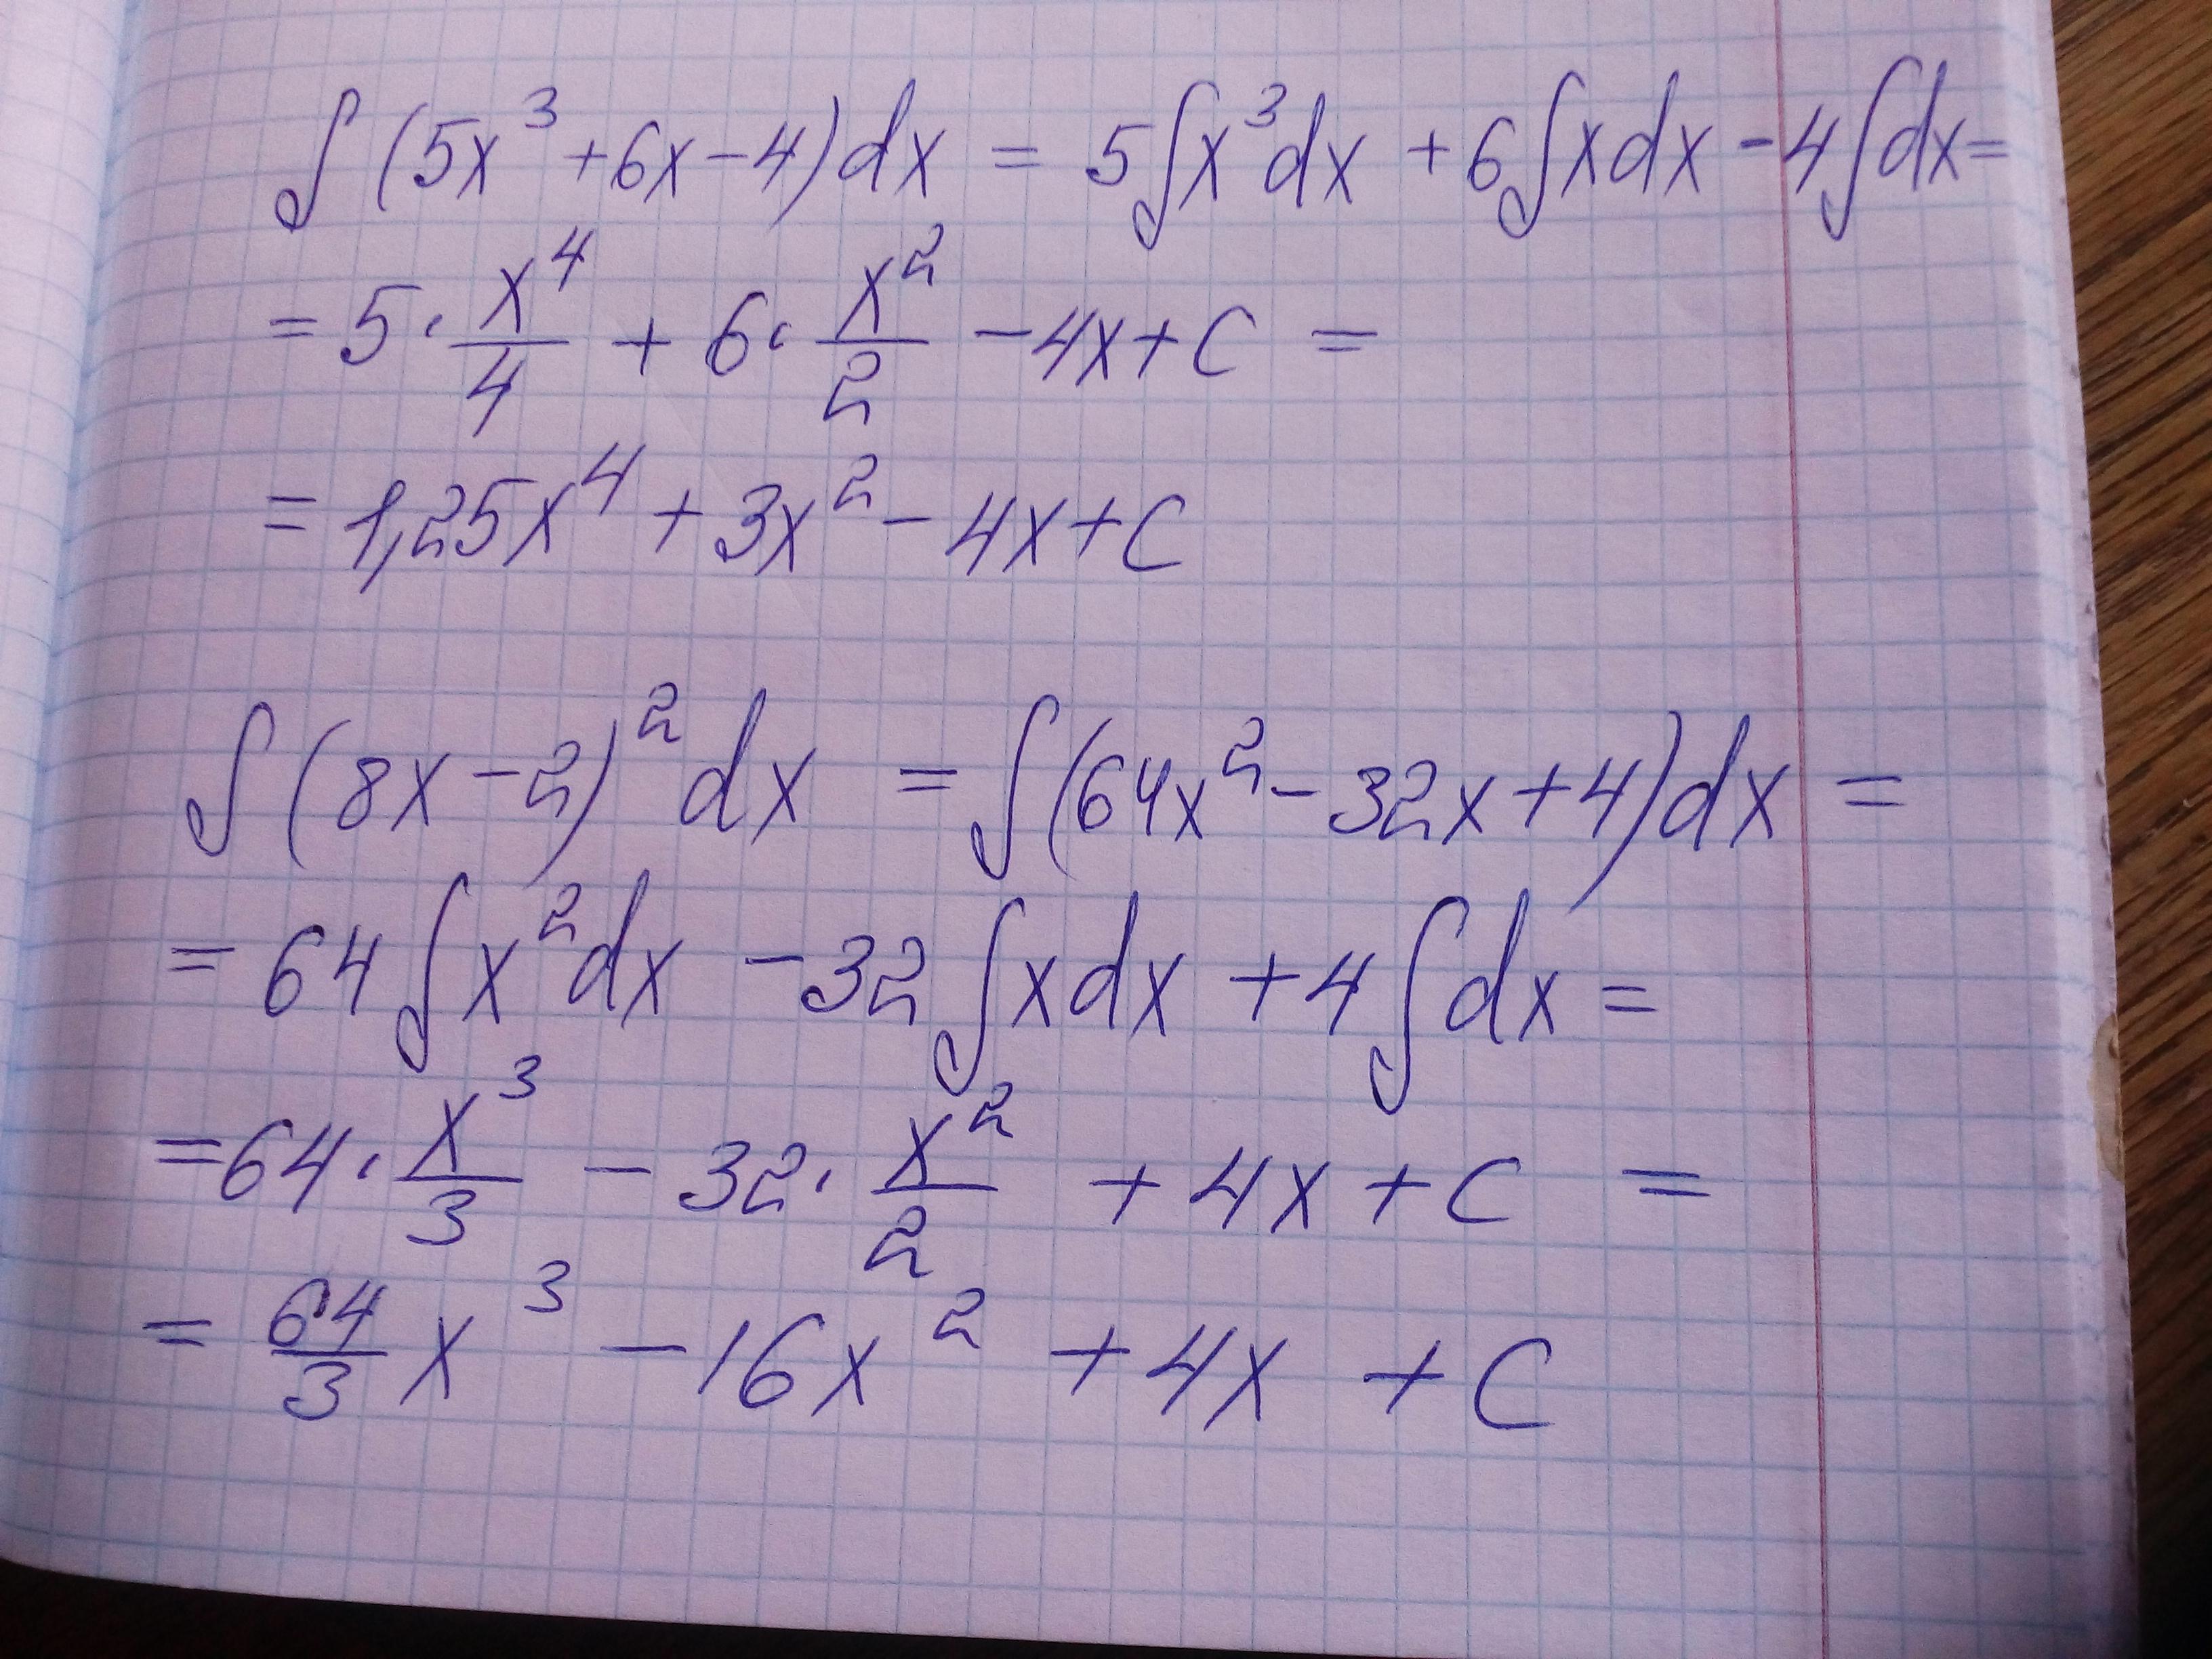 ∫(5x³+6x−4)dx = 5∫x³dx + 6∫xdx − 4∫dx=
= 5·x⁴/4 + 6·x²/2 − 4x + C =
= 1,25x⁴ + 3x² − 4x + C
∫(8x−2)²dx = ∫(64x²−32x+4)dx =
= 64∫x²dx − 32∫xdx + 4∫dx =
= 64·x³/3 − 32·x²/2 + 4x + C =
= 64/3 x³ − 16x² + 4x + C